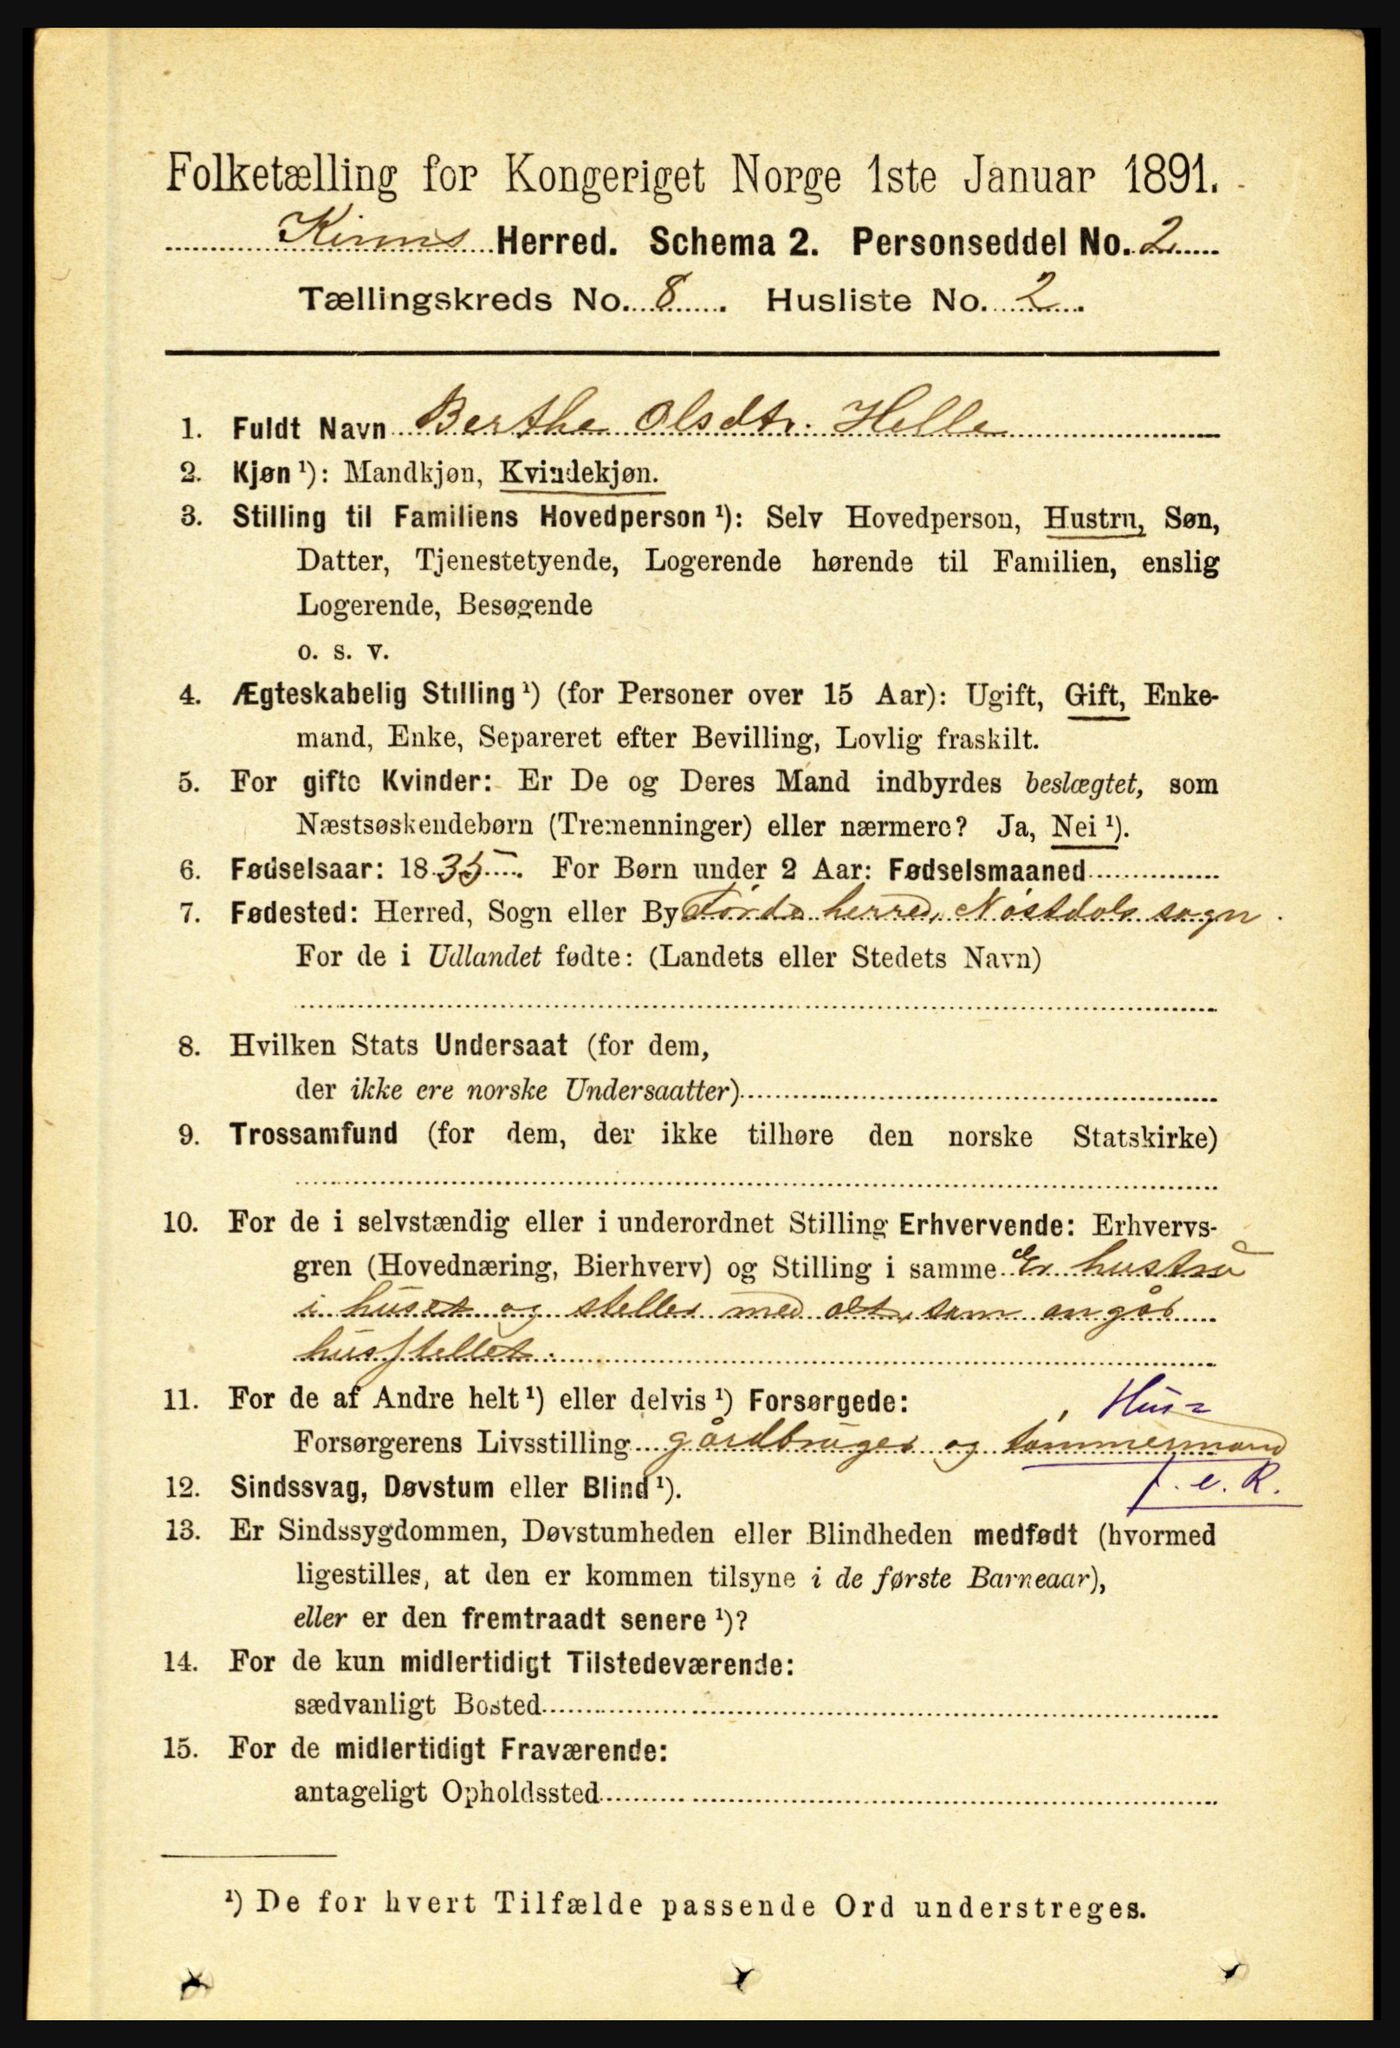 Folketælling for Kongeriget Norge 1ste Januar 1891.
Kinns Herred. Schema 2. Personseddel No. 2
Tællingskreds No. 8. Husliste No. 2.
1. Fuldt Navn Berthe Olsdtr. Helle
2. Kjøn ¹): Mandkjøn, Kvindekjøn.
3. Stilling til Familiens Hovedperson ¹): Selv Hovedperson, Hustru, Søn,
Datter, Tjenestetyende, Logerende hørende til Familien, enslig
Logerende, Besøgende
o. s. v.
4. Ægteskabelig Stilling ¹) (for Personer over 15 Aar): Ugift, Gift, Enke-
mand, Enke, Separeret efter Bevilling, Lovlig fraskilt.
5. For gifte Kvinder: Er De og Deres Mand indbyrdes beslægtet, som
Næstsøskendebørn (Tremenninger) eller nærmere? Ja, Nei ¹).
6. Fødselsaar: 1835. For Børn under 2 Aar: Fødselsmaaned
7. Fødested: Herred, Sogn eller By Førde herred, Nøstdals sogn.
For de i Udlandet fødte: (Landets eller Stedets Navn)
8. Hvilken Stats Undersaat (for dem,
der ikke ere norske Undersaatter)
9. Trossamfund (for dem, der ikke tilhøre den norske Statskirke)
10. For de i selvstændig eller i underordnet Stilling Erhvervende: Erhvervs-
gren (Hovednæring, Bierhverv) og Stilling i samme Er hustru
i huset og steller med alt, som angår
husstellet.
11. For de af Andre helt ¹) eller delvis ¹) Forsørgede: Hus=
Forsørgerens Livsstilling gårdbruger og tømmermand
f. e. R.
12. Sindssvag, Døvstum eller Blind ¹).
13. Er Sindssygdommen, Døvstumheden eller Blindheden medfødt (hvormed
ligestilles, at den er kommen tilsyne i de første Barneaar),
eller er den fremtraadt senere ¹)?
14. For de kun midlertidigt Tilstedeværende:
sædvanligt Bosted
15. For de midlertidigt Fraværende:
antageligt Opholdssted
¹) De for hvert Tilfælde passende Ord understreges.